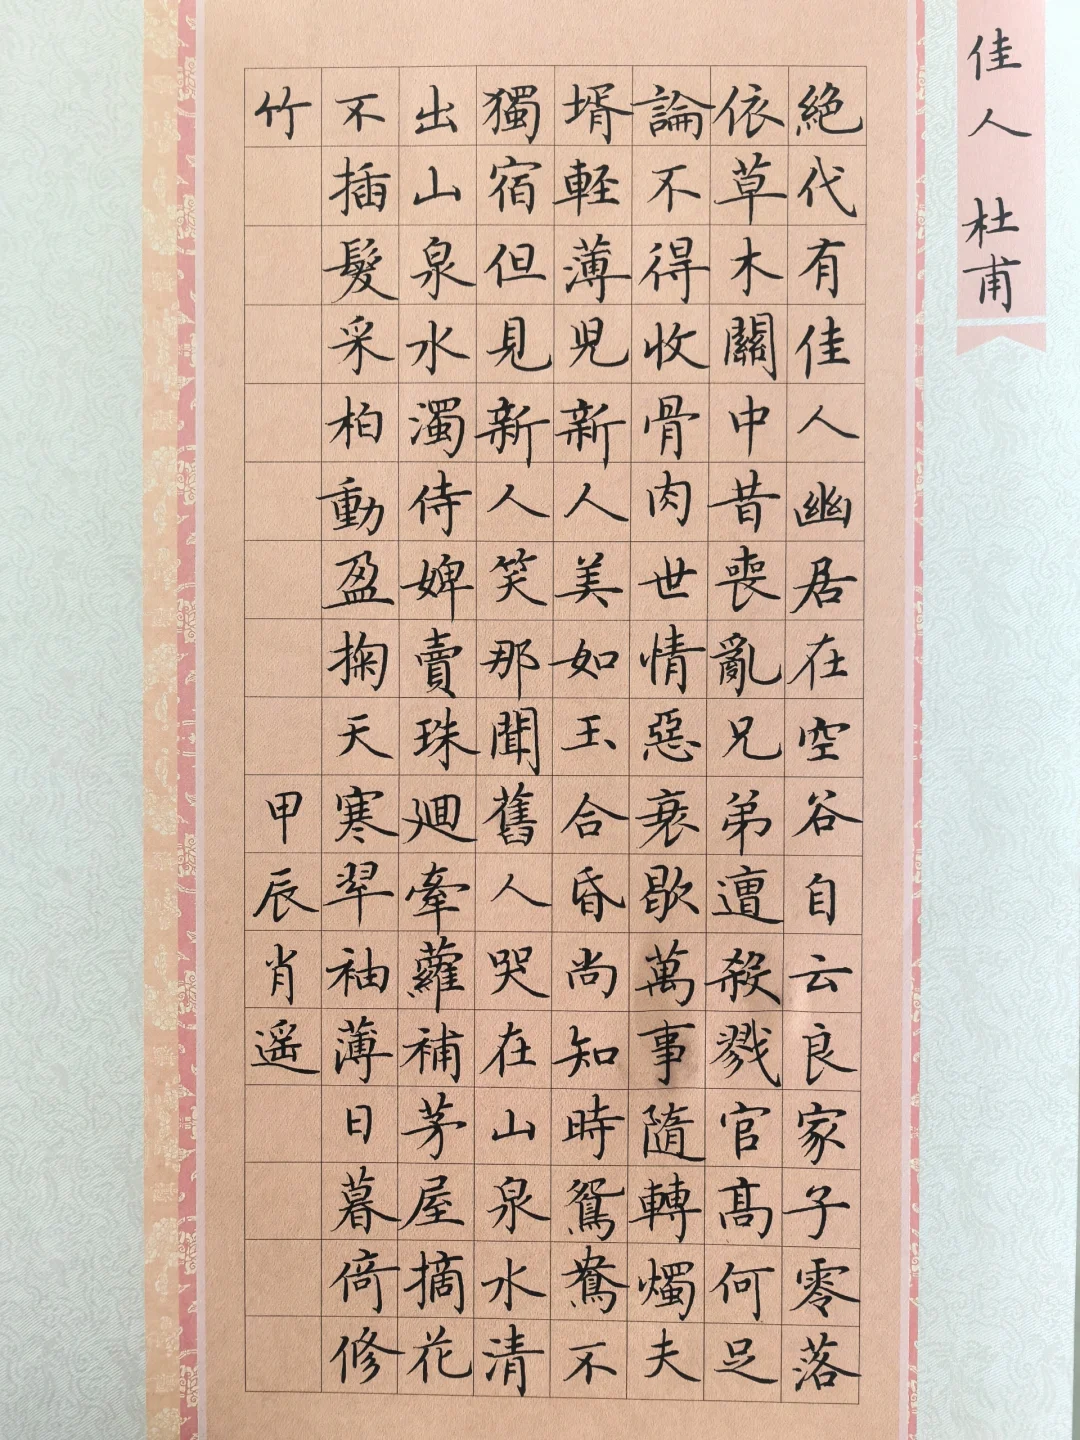 佳人 杜甫
絕代有佳人幽居在空谷自云良家子零落
依草木關中昔喪亂兄弟遭殺戮官高何足
論不得收骨肉世情惡衰歇萬事隨轉燭夫
壻輕薄兒新人美如玉合昏尚知時鴛鴦不
獨宿但見新人笑那聞舊人哭在山泉水清
出山泉水濁侍婢賣珠迴牽蘿補茅屋摘花
不插髮采柏動盈掬天寒翠袖薄日暮倚修
竹 甲辰肖遥